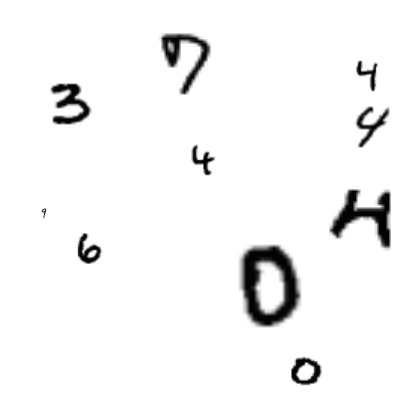 7
4
3
4
4
9
4
6
0
0